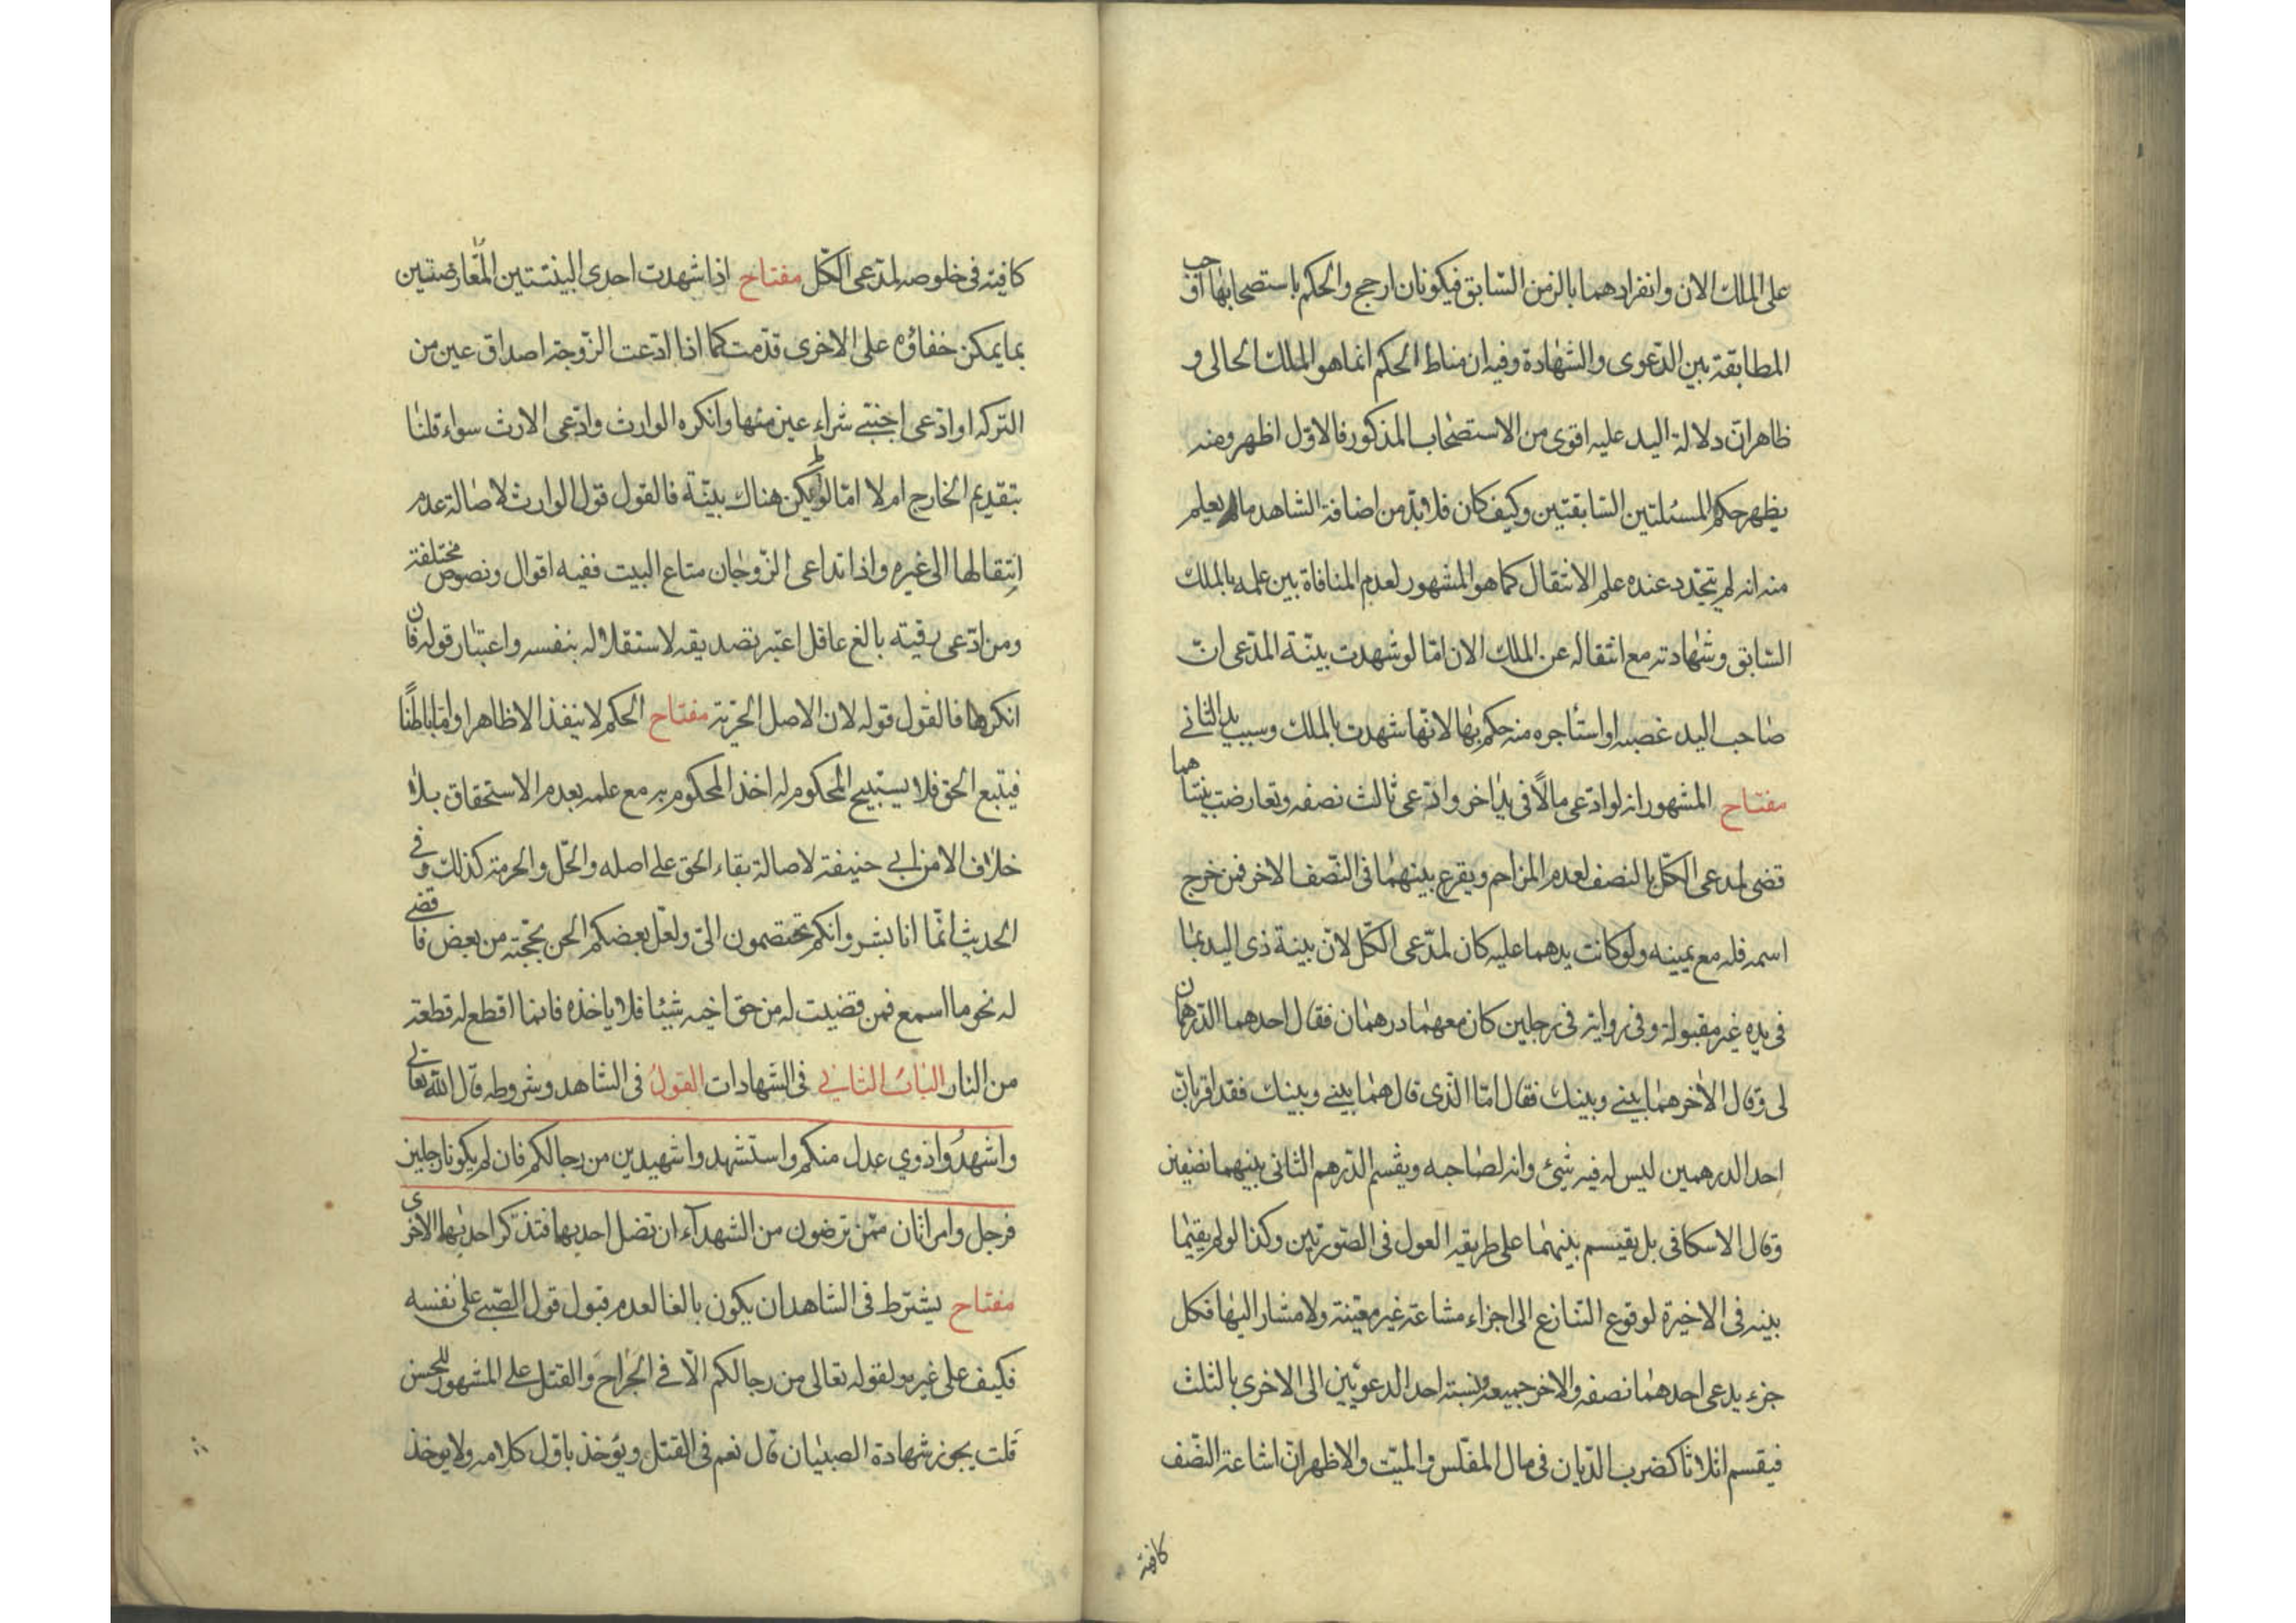 على الملك الان وانفرادهما بالزمن السّابق فيكونان ارجح والحكم باستصحابهما اوجب
المطابقة بين الدّعوى والشهادة وفيه ان مناط الحكم انما هو الملك الحالى و
ظاهر انّ دلالة اليد عليه اقوى من الاستصحاب المذكور فالاوّل اظهر ومنه
يظهر حكم المسئلتين السّابقتين وكيف كان فلا بدّ من اضافة الشاهد ما لم يعلم
منه انه لم يتجدد عنده علم الانتقال كما هو المشهور لعدم المنافاة بين علمه بالملك
السّابق وشهادته مع انتقاله عن الملك الان امّا لو شهدت بينّة المدّعى انّ
صاحب اليد غصبه او استأجره منه حكم بها لانّها شهدت بالملك وسبب يد الثانى
مفتاح المشهور انه لو ادّعى مالًا فى يد اخر وادّعى ثالث نصفه وتعارضت بيّنتاهما
قضى لمدعى الكلّ بالنصف لعدم المزاحم ويقرع بينهما فى النّصف الاخر فمن خرج
اسمه فله مع يمينه ولو كانت يدهما عليه كان لمدّعى الكلّ لانّ بينة ذى اليد بما
فى يده غير مقبولة وفى رواية فى رجلين كان معهما درهمان فقال احدهما الدّرهمان
لى وقال الاخر هما بينى وبينك فقال امّا الذّى قال هما بينى وبينك فقد اقر بانّ
احد الدرهمين ليس له فيه شئ وانه لصاحبه ويقسم الدّرهم الثانى بينهما نصفين
وقال الاسكافى بل يقسم بينهما على طريقه العول فى الصّورتين وكذا لو لم يقيما
بينه فى الاخيرة لوقوع التنازع الى اجزاء مشاعة غير معيّنة ولا مشار اليها فكل
جزء يدعى احدهما نصفه والاخر جميعه ونسبته احد الدعويين الى الاخرى بالثلث
فيقسم اثلاثا كضرب الدّيان فى مال المفلّس والميّت والاظهر انّ اشاعة النّصف
كافية
كافية فى خلوصه لمدّعى الكّل مفتاح اذا شهدت احدى البينتين المتعارضتين
بما يمكن خفاؤه على الاخرى قدّمت كما اذا ادّعت الزّوجة اصداق عين من
التركه او ادّعى اجنبى شراء عين منها وانكره الوارث وادّعى الارث سواء قلنا
بتقديم الخارج ام لا امّا لو لم يكن هناك بينّة فالقول قول الوارث لاصالة عدم
انتقالها الى غيره واذا تداعى الزّوجان متاع البيت ففيه اقوال ونصوص مختلفة
ومن ادّعى رقيته بالغ عاقل اعتبر تصديقه لاستقلاله بنفسه واعتبار قوله فان
انكرها فالقول قوله لان الاصل الحرّية مفتاح الحكم لا ينفذ الا ظاهرا وامّا باطنًا
فيتبع الحق فلا يستبيح المحكوم له اخذ المحكوم به مع علمه بعدم الاستحقاق بلا
خلاف الا من ابى حنيفة لاصالة بقاء الحق على اصله والحلّ والحرمة كذلك وفى
الحديث انّما انا بشر وانكم تختصمون الىّ ولعّل بعضكم الحن بحجّته من بعض فاقضى
له نحو ما اسمع فمن قضيت له من حق اخيه شيئا فلا ياخذه فانما اقطع له قطعة
من النار الباب الثانى فى الشهادات القول فى الشاهد وشروطه قال الله تعالى
واشهدوا ذوي عدل منكم واستشهدوا شهيدين من رجالكم فان لم يكونا رجلين
فرجل وامراتان ممّن ترضون من الشهدآء ان تضل احديهما فتذكّر احديهما الاخرى
مفتاح يشترط فى الشاهد ان يكون بالغا لعدم قبول قول الصّبى على نفسه
فكيف على غيره ولقوله تعالى من رجالكم الّا فى الجراح والقتل على المشهور للحسن
قلت يجوز شهادة الصبيان قال نعم فى القتل ويؤخذ باوّل كلامه ولا يوخذ